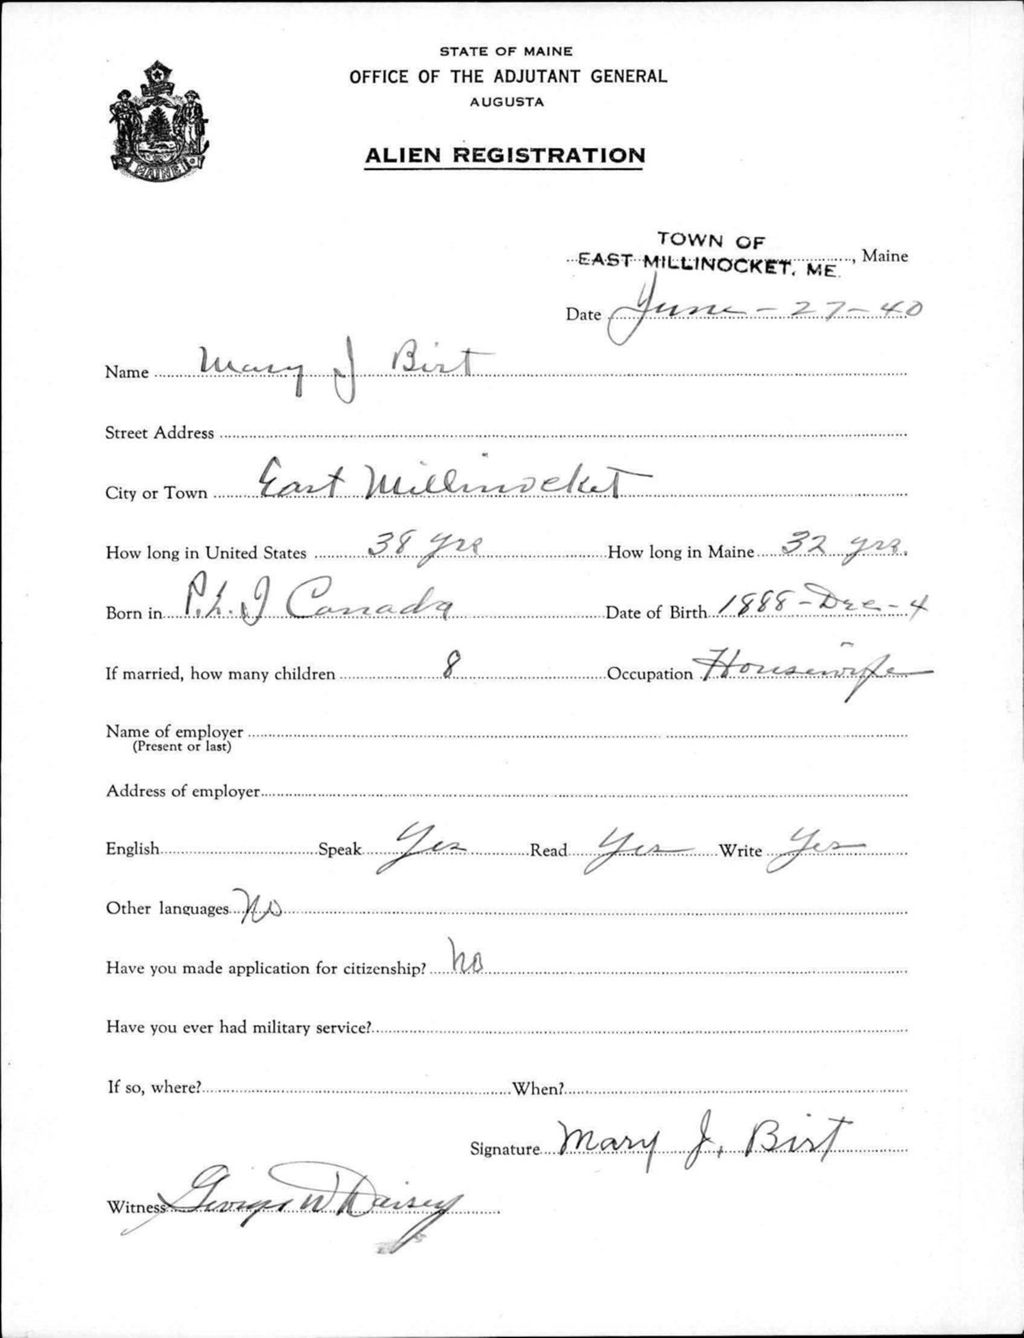 STATE OF MAINE
OFFICE OF THE ADJUTANT GENERAL
AUGUSTA
ALIEN REGISTRATION
MAINE
TOWN OF
EAST MILLINOCKET, ME., Maine
Date June - 27 - 40
Name Mary J Birt
Street Address
City or Town East Millinocket
How long in United States 38 yrs How long in Maine 32 yrs.
Born in P.E.I Canada Date of Birth 1888 - Dec - 4
If married, how many children 8 Occupation Housewife
Name of employer
(Present or last)
Address of employer
English Speak Yes Read Yes Write Yes
Other languages No
Have you made application for citizenship? No
Have you ever had military service?
If so, where? When?
Signature Mary J. Birt
Witness George W Daisey